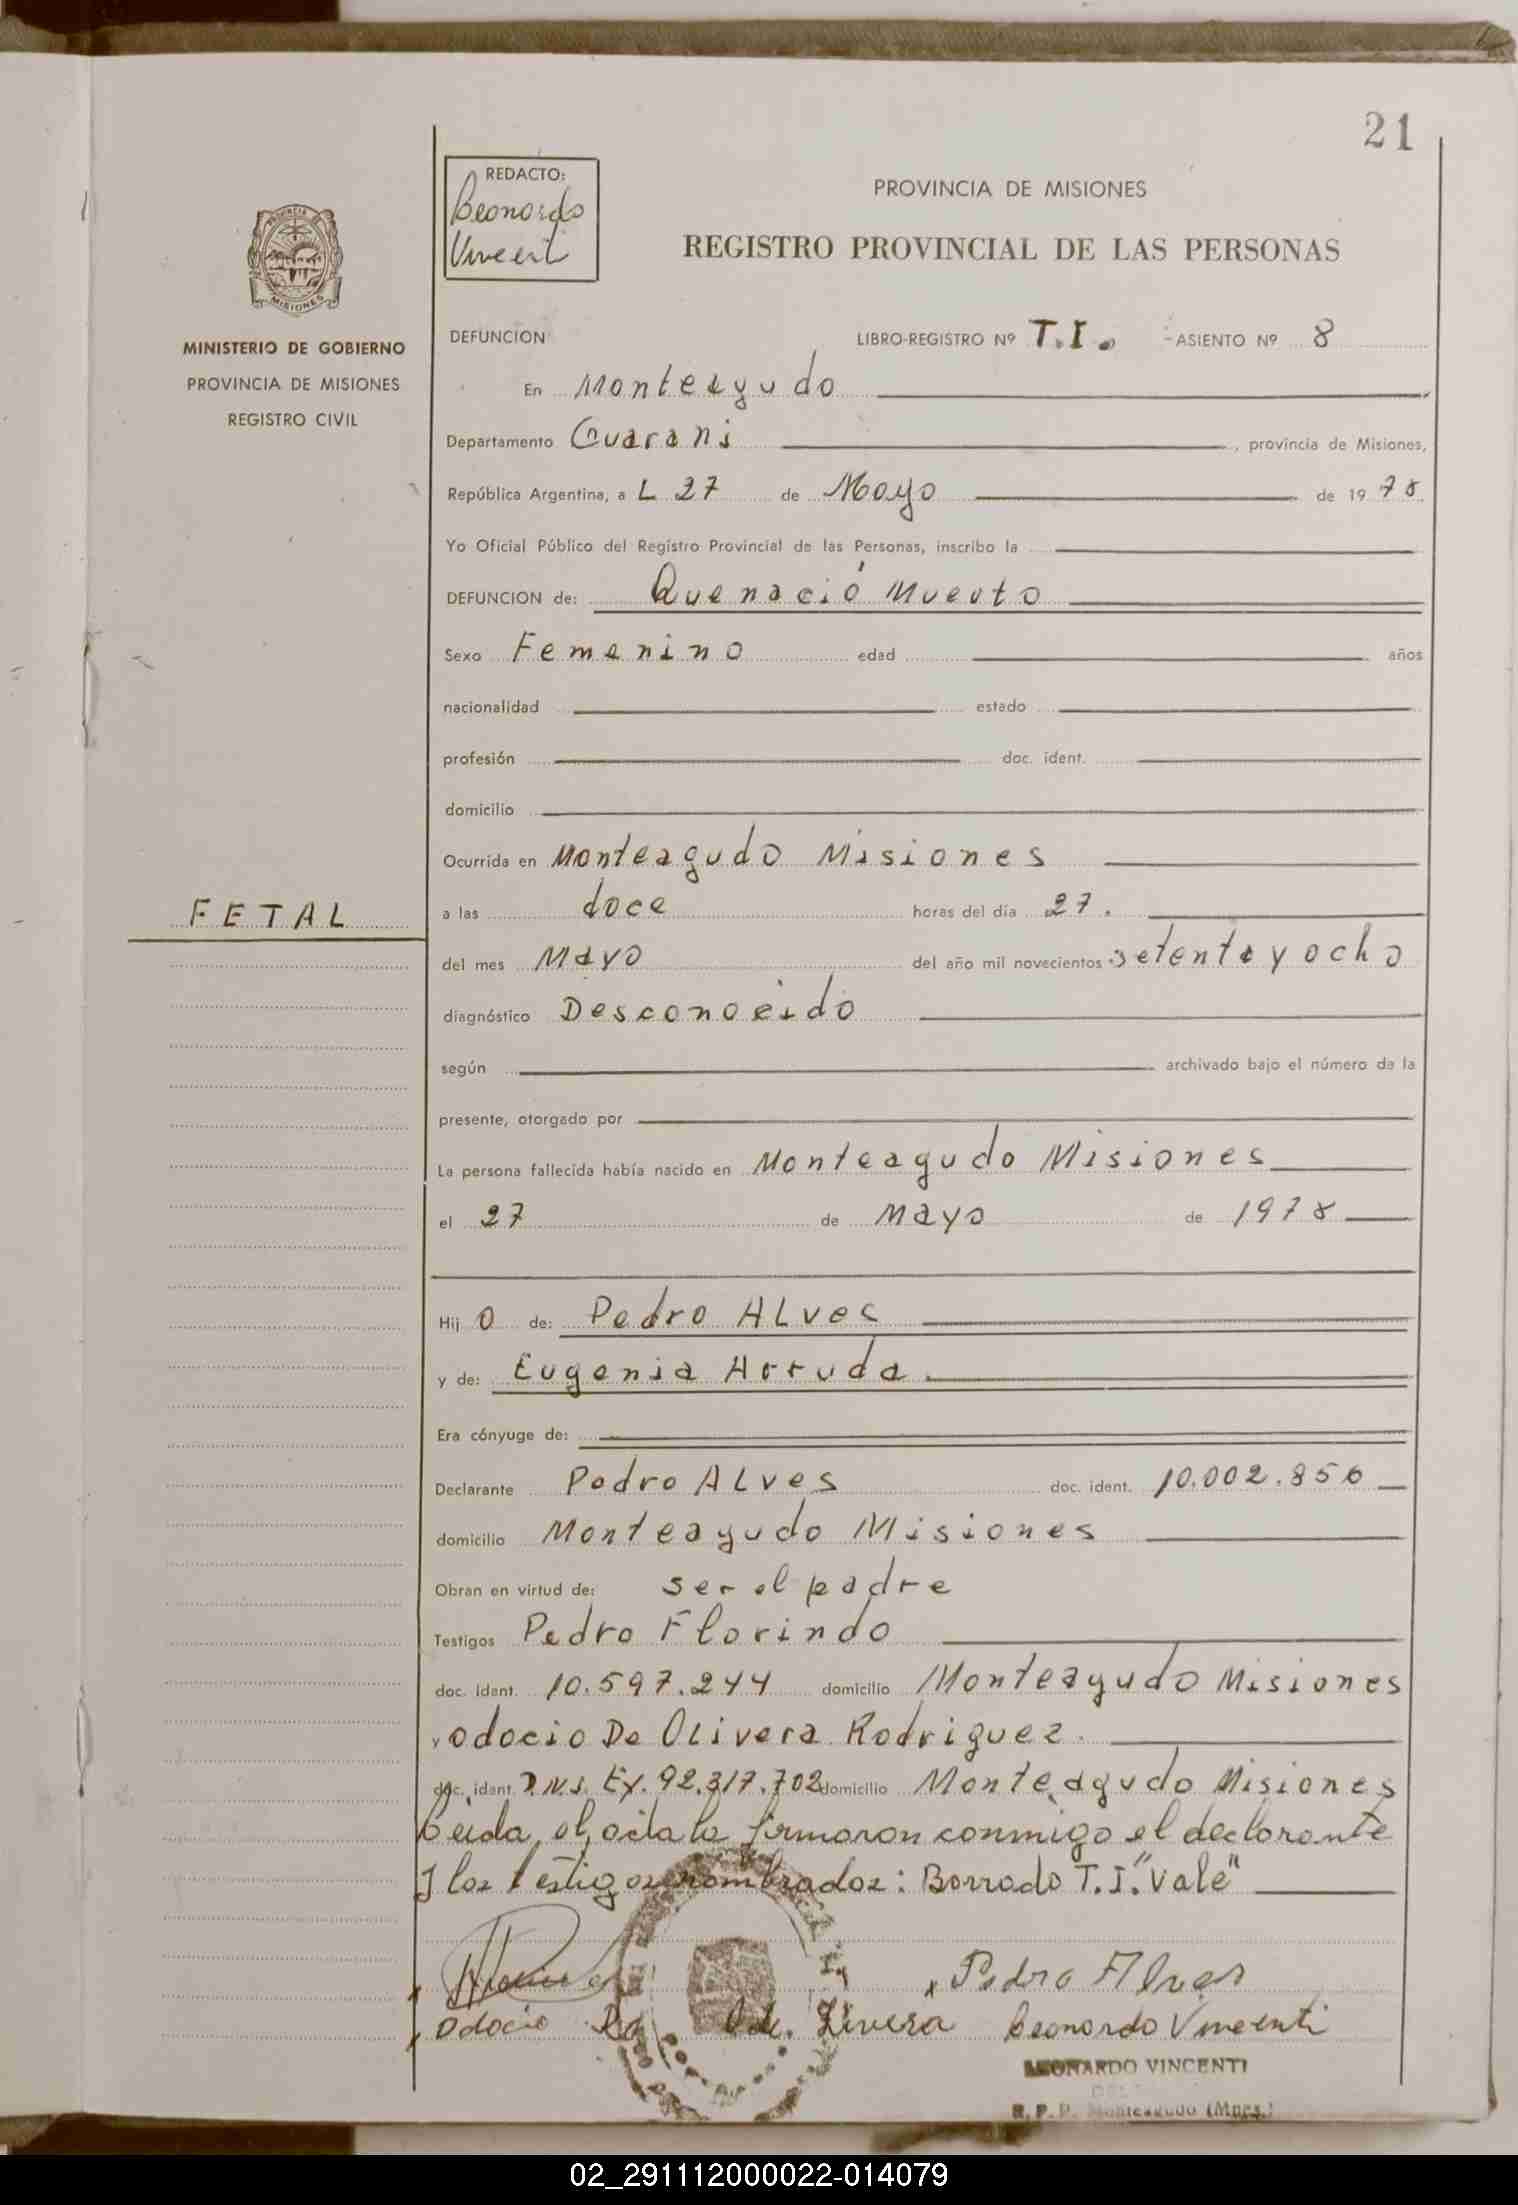 21
REDACTO:
Leonardo
Vincenti
PROVINCIA DE MISIONES
REGISTRO PROVINCIAL DE LAS PERSONAS
PROVINCIA DE
MISIONES
MINISTERIO DE GOBIERNO
PROVINCIA DE MISIONES
REGISTRO CIVIL
DEFUNCION LIBRO-REGISTRO Nº T.I. -ASIENTO Nº 8
En Monteagudo
Departamento Guarani, provincia de Misiones,
República Argentina, a L 27 de Mayo de 1978
Yo Oficial Público del Registro Provincial de las Personas, inscribo la
DEFUNCION de: Que nació Muerto
Sexo Femenino edad años
nacionalidad estado
profesión doc. ident.
domicilio
Ocurrida en Monteagudo Misiones
FETAL
a las doce horas del día 27.
del mes Mayo del año mil novecientos setenta y ocho
diagnóstico Desconocido
según archivado bajo el número de la
presente, otorgado por
La persona fallecida había nacido en Monteagudo Misiones
el 27 de Mayo de 1978
Hij o de: Pedro ALves
y de: Eugenia Arruda
Era cónyuge de:
Declarante Pedro ALves doc. ident. 10.002.856
domicilio Monteagudo Misiones
Obran en virtud de: ser el padre
Testigos Pedro Florindo
doc. ident. 10.597.244 domicilio Monteagudo Misiones
y Odocio De Olivera Rodriguez.
doc. ident. D.N.I. Ex. 92.317.702 domicilio Monteagudo Misiones
Leida el acta la firmaron conmigo el declarante
y los testigos nombrados: Borrado T.I. "Vale"
Pedro Alves
Odocio Ro de Livera Leonardo Vincenti
LEONARDO VINCENTI
R. P. P. Monteagudo (Mnes.)
02_291112000022-014079